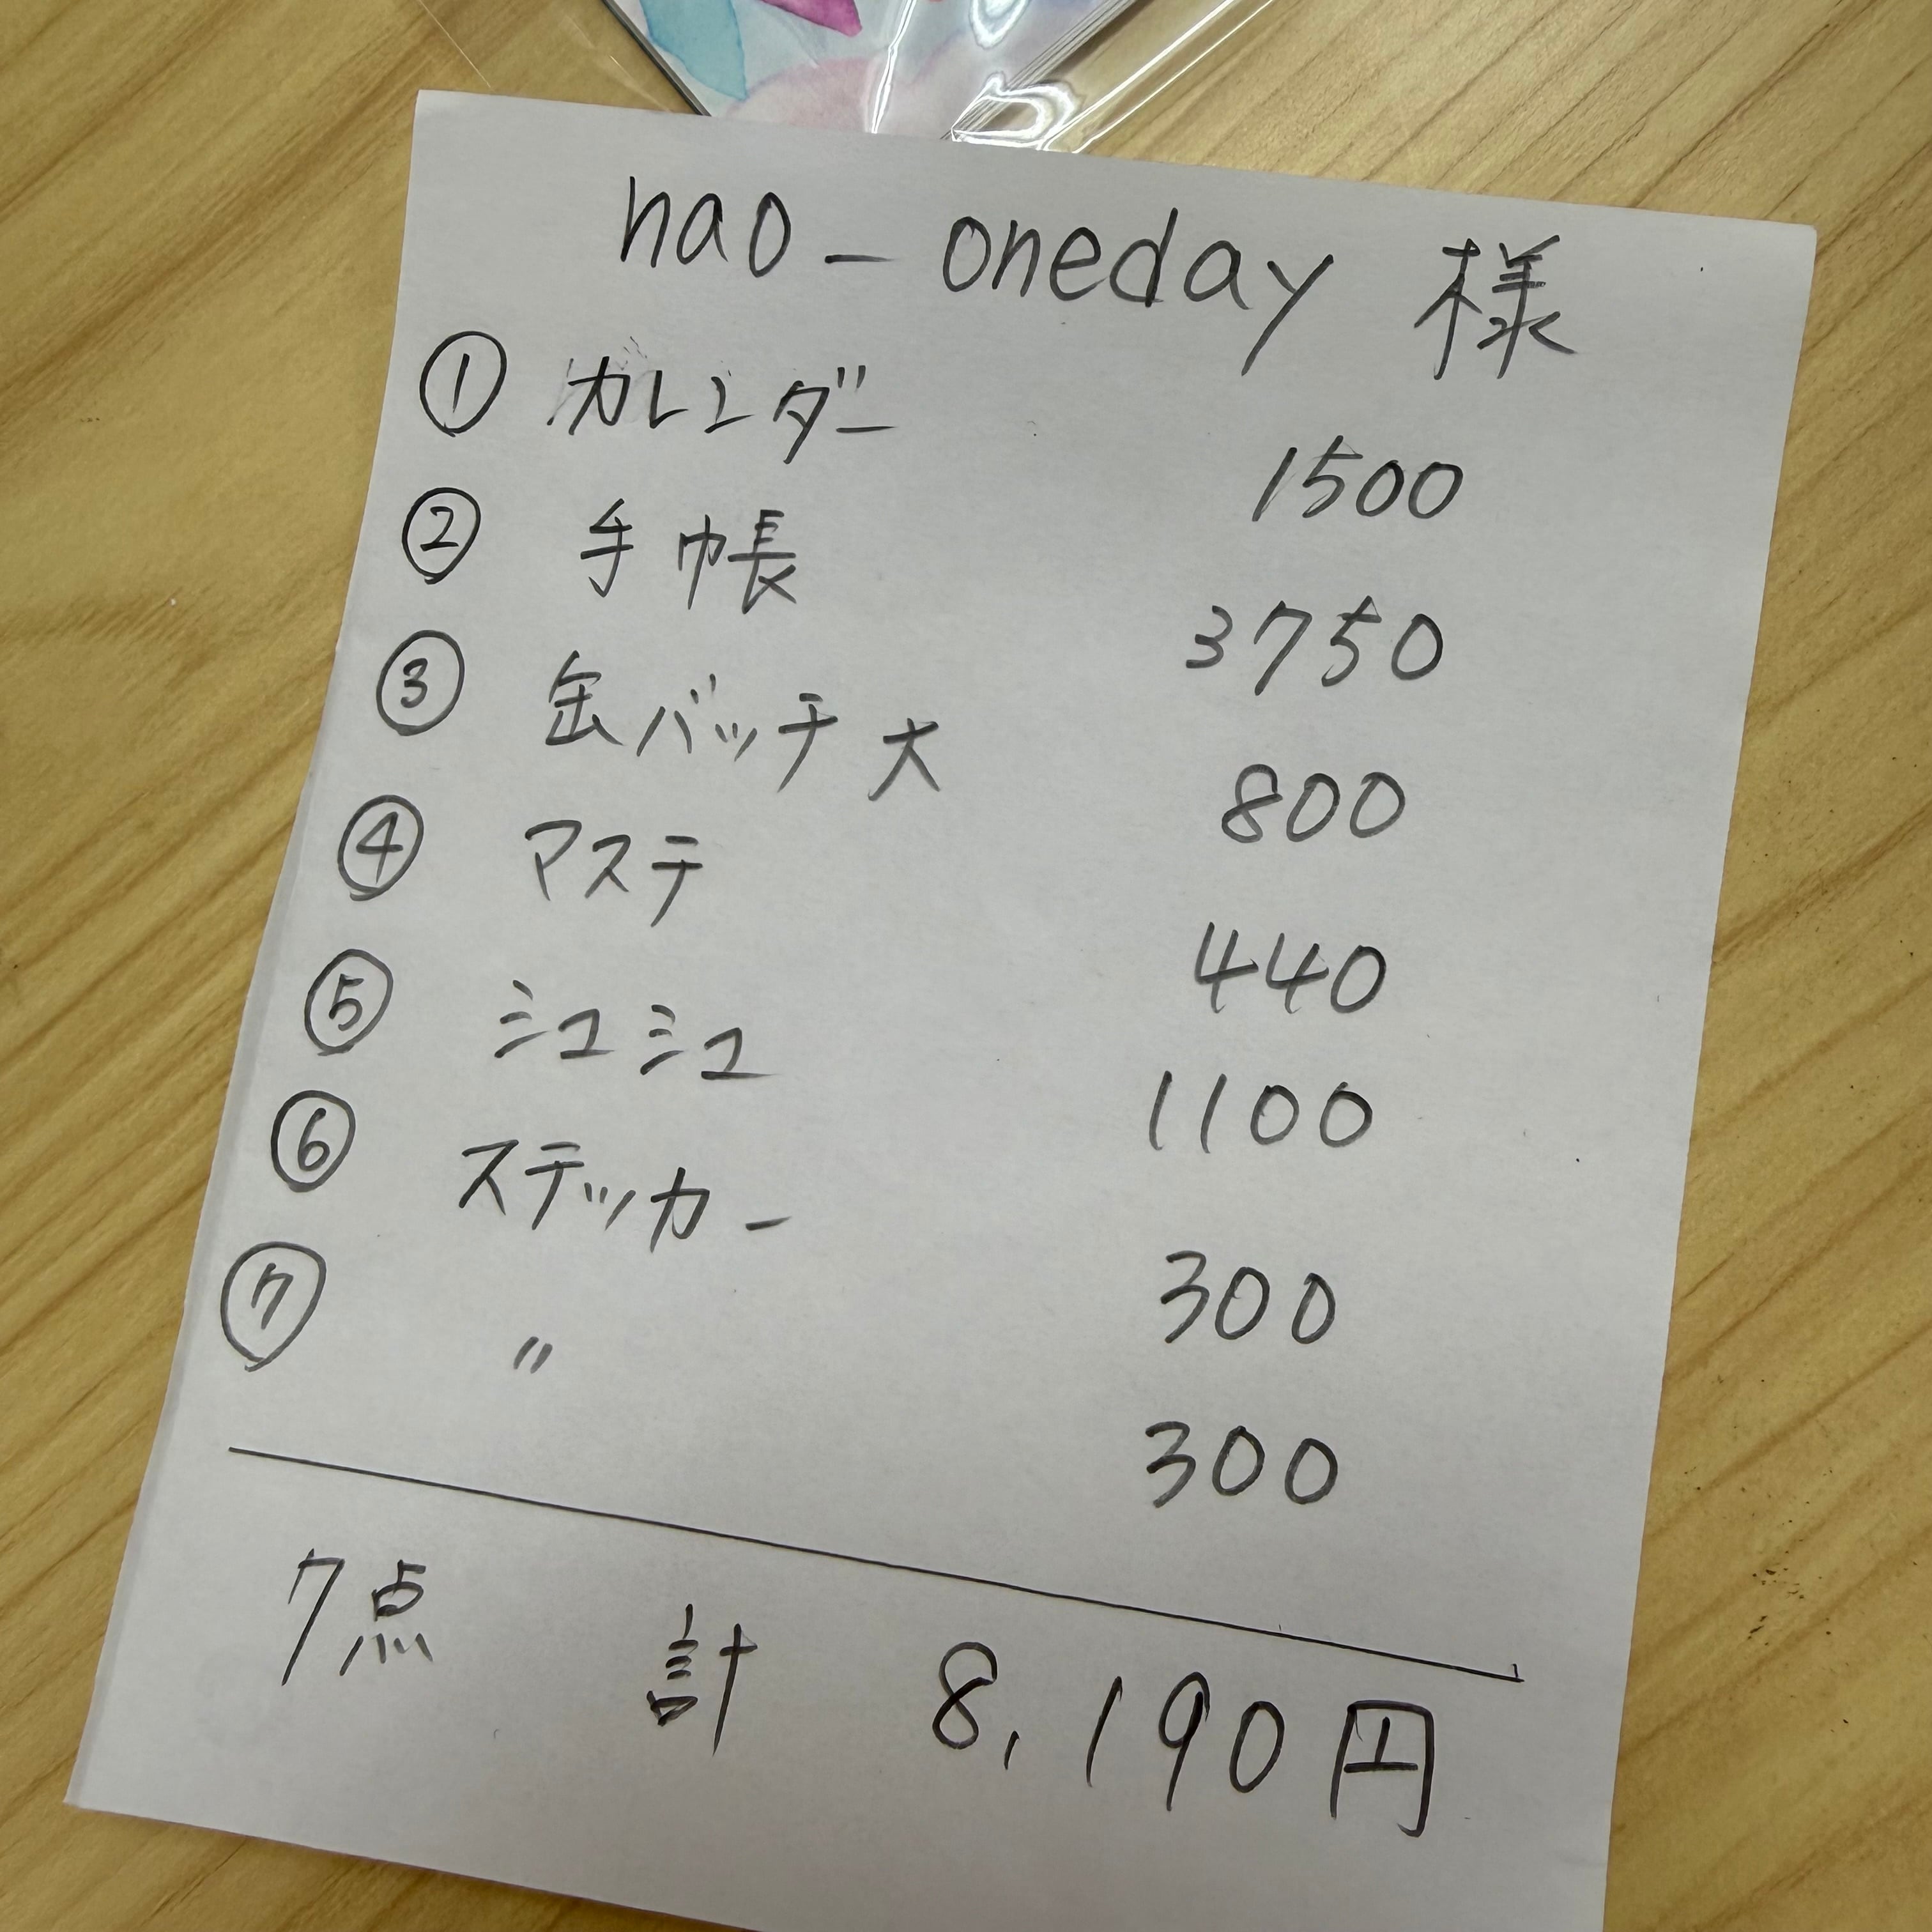 nao_oneday 様
① カレンダー 1500
② 手帳 3750
③ 缶バッチ 大 800
④ マステ 440
⑤ シュシュ 1100
⑥ ステッカー 300
⑦ 〃 300
7点 計 8,190円